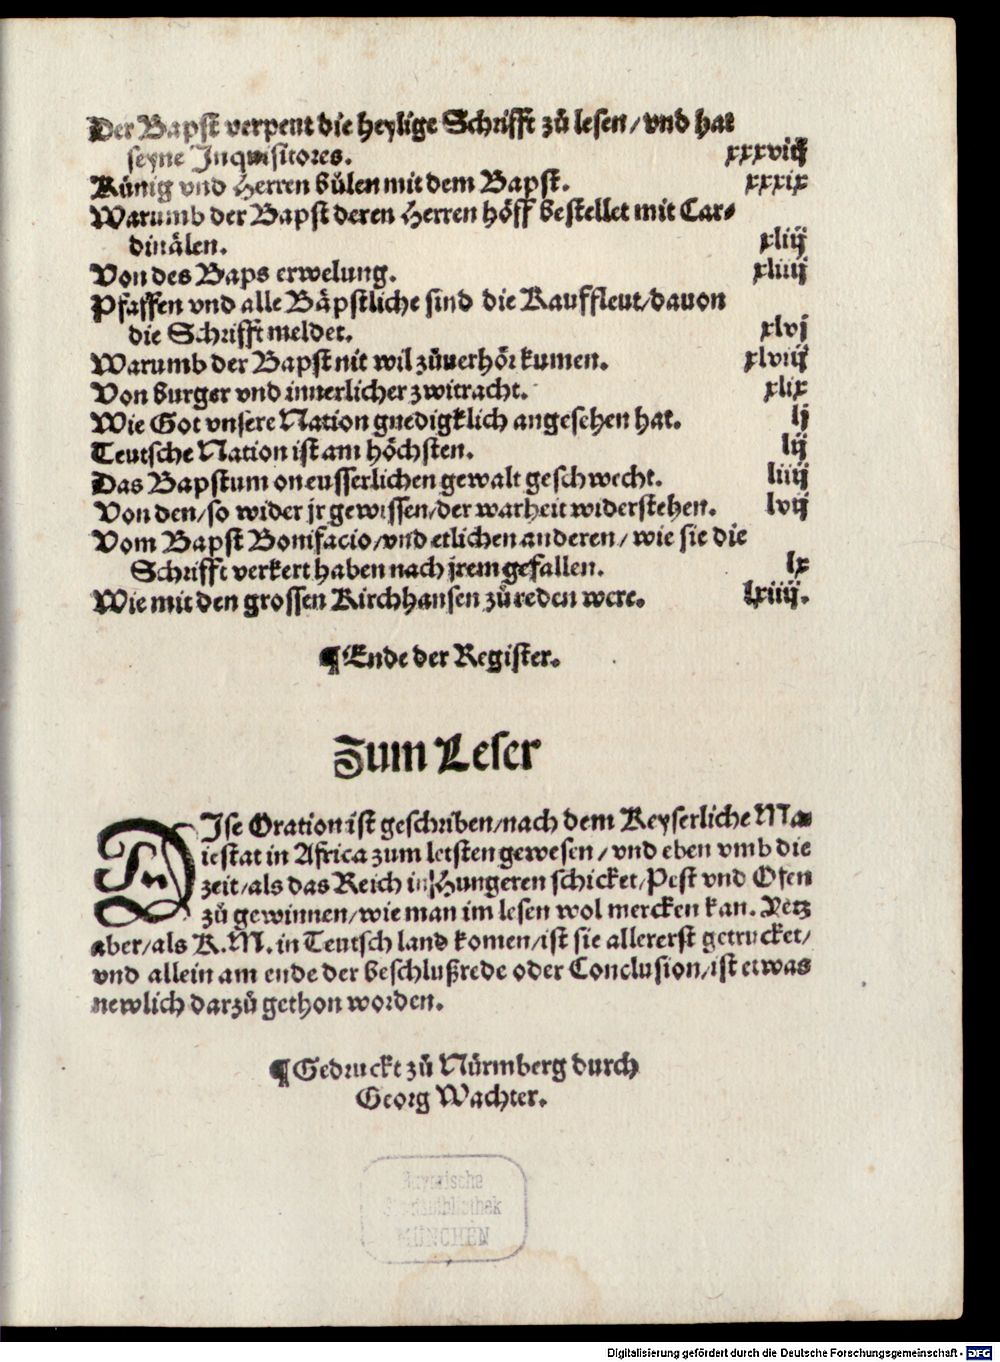 Der Bapst verpeut die heylige Schrifft zů lesen/ vnd hat
seyne Inquisitores. xxxviij
Künig vnd Herren bůlen mit dem Bapst. xxxix
Warumb der Bapst deren Herren höff bestellet mit Car⸗
dinälen. xliij
Von des Baps erwelung. xliiij
Pfaffen vnd alle Bäpstliche sind die Kauffleut/dauon
die Schrifft meldet. xlvj
Warumb der Bapst nit wil zůuerhör kumen. xlviij
Von burger vnd innerlicher zwitracht. xlix
Wie Got vnsere Nation gnedigklich angesehen hat. lj
Teutsche Nation ist am höchsten. lij
Das Bapstum on eusserlichen gewalt geschwecht. liiij
Von den/so wider jr gewissen/der warheit widerstehen. lvij
Vom Bapst Bonifacio/vnd etlichen anderen/ wie sie die
Schrifft verkert haben nach jrem gefallen. lx
Wie mit den grossen Kirchhansen zů reden were. lxiiij.
¶ Ende der Register.
Zum Leser
DIse Oration ist geschriben/nach dem Keyserliche Ma⸗
iestat in Africa zum letsten gewesen/ vnd eben vmb die
zeit/als das Reich in Hungeren schicket/Pest vnd Ofen
zů gewinnen/wie man im lesen wol mercken kan. Yetz
aber/als K.M. in Teutsch land komen/ist sie allererst getrucket/
vnd allein am ende der beschlußrede oder Conclusion/ist etwas
newlich darzů gethon worden.
¶ Gedruckt zů Nürmberg durch
Georg Wachter.
Bayerische
Staatsbibliothek
MÜNCHEN
Digitalisierung gefördert durch die Deutsche Forschungsgemeinschaft - DFG